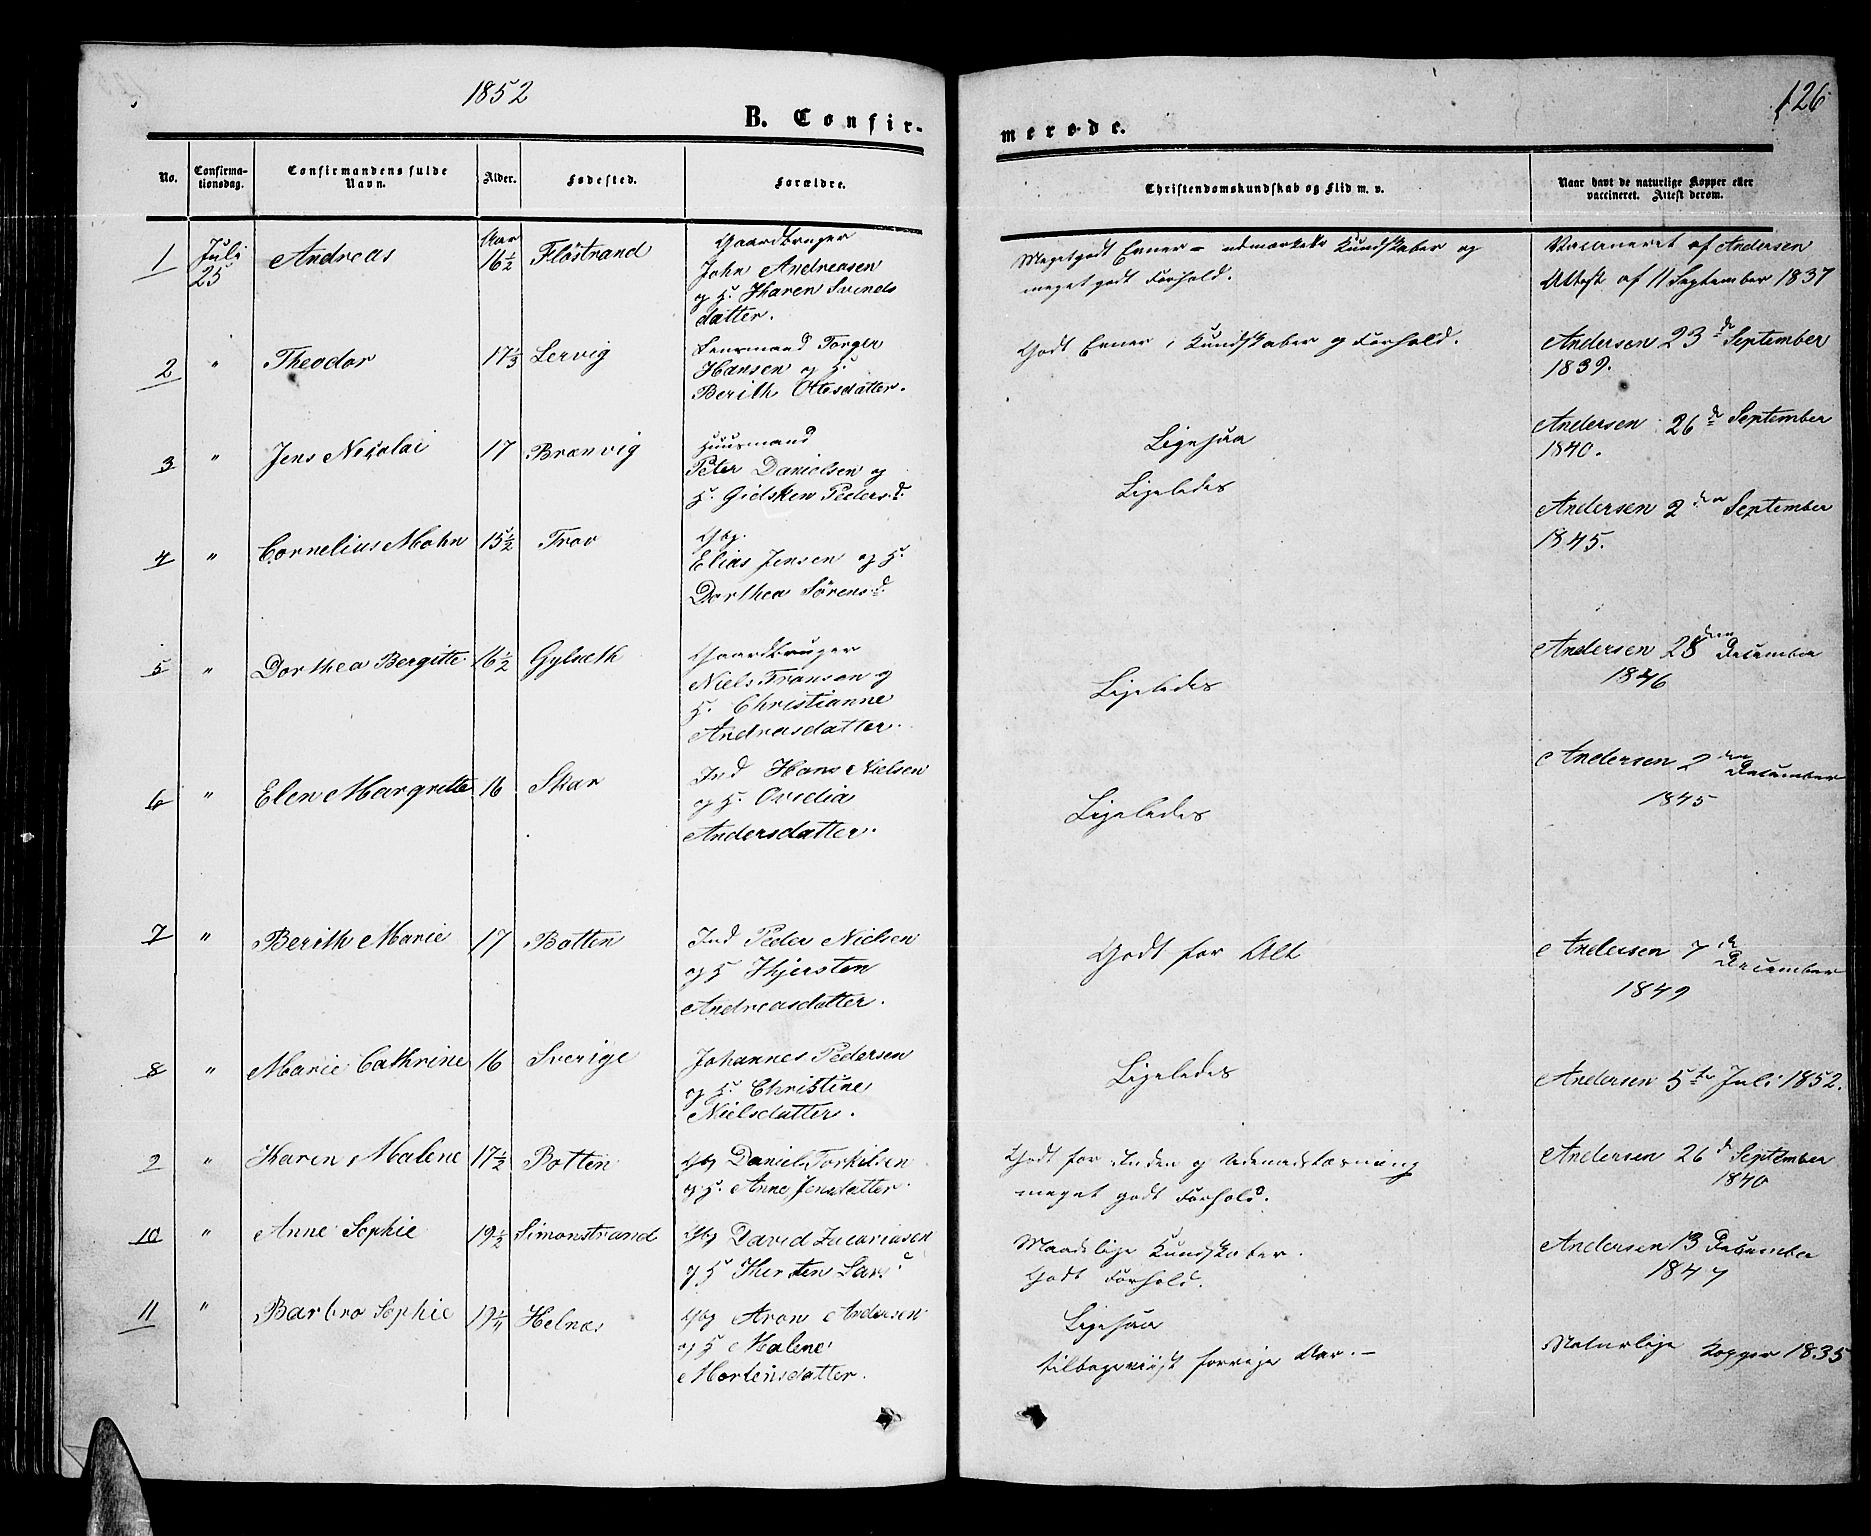 1852
126
B. Confir-
merede.
No.
Confirma-
tionsdag.
Confirmandens fulde
Navn.
Alder.
Fødested.
Forældre.
Christendomskundskab og Flid m. v.
Naar havt de naturlige Kopper eller
vaccineret. Attest derom.
1 Juli 25 Andreas Aar 16½ Flöstrand
Gaardbruger
John Andreasen
og H. Karen Svends
datter.
Megetgodt Evner - udmærkede Kundskaber og
meget godt Forhold.
Vacineret af Andersen
Attest af 11 September 1837
2 " Theodor 17⅓ Lervig
Lensmand Torger
Hansen og H.
Berith Ottesdatter.
Godt Evner, Kundskaber og Forhold.
Andersen 23 d September
1839.
3 " Jens Nicolai 17 Brænvig
Huusmand
Peter Danielsen og
H. Gidsken Peders d.
Ligesaa
Andersen 26 d September
1840.
4 " Cornelius Mohn 15½ Trov
Gbg.
Elias Jensen og H.
Dorthea Sörens d.
Ligeledes
Andersen 2 den September
1845.
5 " Dorthea Bergitte 16½ Gylseth
Gaardbruger
Niels Fransen og
H. Christianne
Andreasdatter.
Ligeledes
Andersen 28 den December
1846
6 " Elen Margrette 16 Skar
Ind Hans Nielsen
og H. Ovedia
Andersdatter.
Ligeledes
Andersen 2 den December
1845
7 " Berith Marie 17 Botten
Ind Peder Nielsen
og H Kjersten
Andreasdatter.
Godt for Alt
Andersen 7 d December
1849
8 " Marie Cathrine 16 Sverige
Johannes Pedersen
og H. Christine
Nielsdatter.
Ligeledes
Andersen 5te Juli 1852.
9 " Karen Malene 17½ Botten
Gbg Daniel Torkilsen
og H. Anne Jensdatter.
Godt for Inden og Udenadslæsning
meget godt Forhold.
Andersen 26 d September
1840
10 " Anne Sophie 19½ Simonstrand
Gbg David Zacariasen
og H Kirsten Lars d
Maadelige Kundskaber.
Godt Forhold.
Andersen 13 December
1847
11 " Barbro Sophie 19¼ Helnæs
Gbg Aron Andersen
og H Malene
Mortensdatter.
Ligesaa
tilbageviist forrige Aar. -
Naturlige Kopper 1835